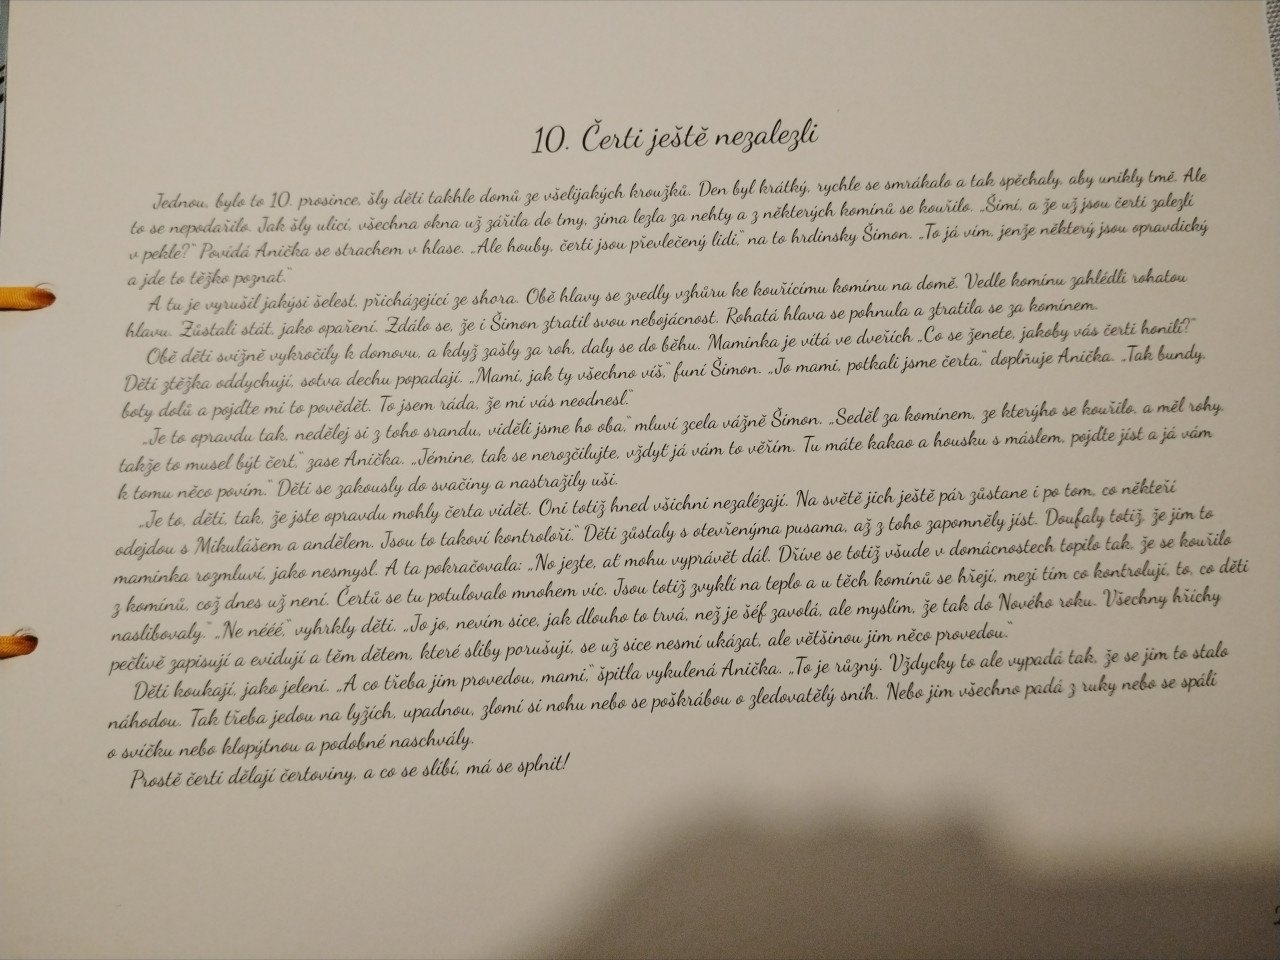 10. Čerti ještě nezalezli
Jednou, bylo to 10. prosince, šly děti takhle domů ze všelijakých kroužků. Den byl krátký, rychle se smrákalo a tak spěchaly, aby unikly tmě. Ale
to se nepodařilo. Jak šly ulicí, všechna okna už zářila do tmy, zima lezla za nehty a z některých komínů se kouřilo. „Šimi, a že už jsou čerti zalezlí
v pekle?“ Povídá Anička se strachem v hlase. „Ale houby, čerti jsou převlečený lidi,“ na to hrdinsky Šimon. „To já vím, jenže některý jsou opravdický
a jde to těžko poznat.“
A tu je vyrušil jakýsi šelest, přicházející ze shora. Obě hlavy se zvedly vzhůru ke kouřícímu komínu na domě. Vedle komínu zahlédli rohatou
hlavu. Zůstali stát, jako opaření. Zdálo se, že i Šimon ztratil svou nebojácnost. Rohatá hlava se pohnula a ztratila se za komínem.
Obě děti svižně vykročily k domovu, a když zašly za roh, daly se do běhu. Maminka je vítá ve dveřích „Co se ženete, jakoby vás čerti honili?“
Děti ztěžka oddychují, sotva dechu popadají. „Mami, jak ty všechno víš,“ funí Šimon. „Jo mami, potkali jsme čerta,“ doplňuje Anička. „Tak bundy,
boty dolů a pojďte mi to povědět. To jsem ráda, že mi vás neodnesl.“
„Je to opravdu tak, nedělej si z toho srandu, viděli jsme ho oba,“ mluví zcela vážně Šimon. „Seděl za komínem, ze kterýho se kouřilo, a měl rohy,
takže to musel být čert,“ zase Anička. „Jémine, tak se nerozčilujte, vždyť já vám to věřím. Tu máte kakao a housku s máslem, pojďte jíst a já vám
k tomu něco povím.“ Děti se zakously do svačiny a nastražily uši.
„Je to, děti, tak, že jste opravdu mohly čerta vidět. Oni totiž hned všichni nezalézají. Na světě jich ještě pár zůstane i po tom, co někteří
odejdou s Mikulášem a andělem. Jsou to takoví kontroloři.“ Děti zůstaly s otevřenýma pusama, až z toho zapomněly jíst. Doufaly totiž, že jim to
maminka rozmluví, jako nesmysl. A ta pokračovala: „No jezte, ať mohu vyprávět dál. Dříve se totiž všude v domácnostech topilo tak, že se kouřilo
z komínů, což dnes už není. Čertů se tu potulovalo mnohem víc. Jsou totiž zvyklí na teplo a u těch komínů se hřejí, mezi tím co kontrolují, to, co děti
naslibovaly.“ „Ne nééé,“ vyhrkly děti. „Jo jo, nevím sice, jak dlouho to trvá, než je šéf zavolá, ale myslím, že tak do Nového roku. Všechny hříchy
pečlivě zapisují a evidují a těm dětem, které sliby porušují, se už sice nesmí ukázat, ale většinou jim něco provedou.“
Děti koukají, jako jeleni. „A co třeba jim provedou, mami,“ špitla vykulená Anička. „To je různý. Vždycky to ale vypadá tak, že se jim to stalo
náhodou. Tak třeba jedou na lyžích, upadnou, zlomí si nohu nebo se poškrábou o zledovatělý sníh. Nebo jim všechno padá z ruky nebo se spálí
o svíčku nebo klopýtnou a podobné naschvály.
Prostě čerti dělají čertoviny, a co se slíbí, má se splnit!